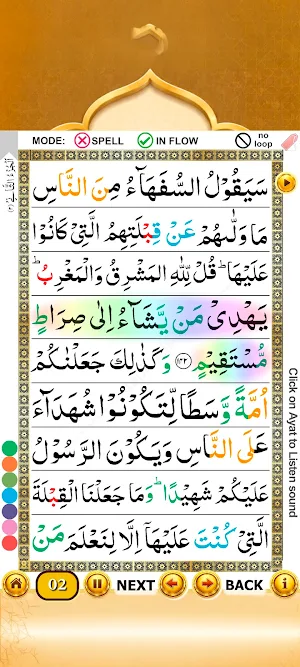 MODE: SPELL IN FLOW no loop
سَيَقُوْلُ السُّفَهَآءُ مِنَ النَّاسِ
مَا وَلّٰىهُمْ عَنْ قِبْلَتِهِمُ الَّتِىْ كَانُوْا
عَلَيْهَا ؕ قُلْ لِّلّٰهِ الْمَشْرِقُ وَالْمَغْرِبُ ؕ
يَهْدِىْ مَنْ يَّشَآءُ اِلٰى صِرَاطٍ
مُّسْتَقِيْمٍ ﴿۱۴۲﴾ وَكَذٰلِكَ جَعَلْنٰكُمْ
اُمَّةً وَّسَطًا لِّتَكُوْنُوْا شُهَدَآءَ
عَلَى النَّاسِ وَيَكُوْنَ الرَّسُوْلُ
عَلَيْكُمْ شَهِيْدًا ؕ وَمَا جَعَلْنَا الْقِبْلَةَ
الَّتِىْ كُنْتَ عَلَيْهَآ اِلَّا لِنَعْلَمَ مَنْ
Click on Ayat to Listen sound
02 NEXT BACK i